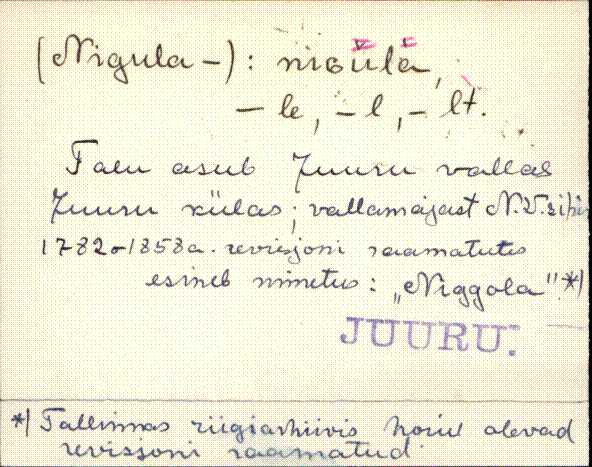 (Nigula -): niGula,
- le, - l, - lt.
Talu asub Juuru vallas
Juuru külas; vallamajast N.V.
1782-1858 a. revisjoni raamatutes
esineb nimetus: „Niggola".*)
JUURU.
*) Tallinnas riigiarhiivis hoiul olevad
revisjoni raamatud